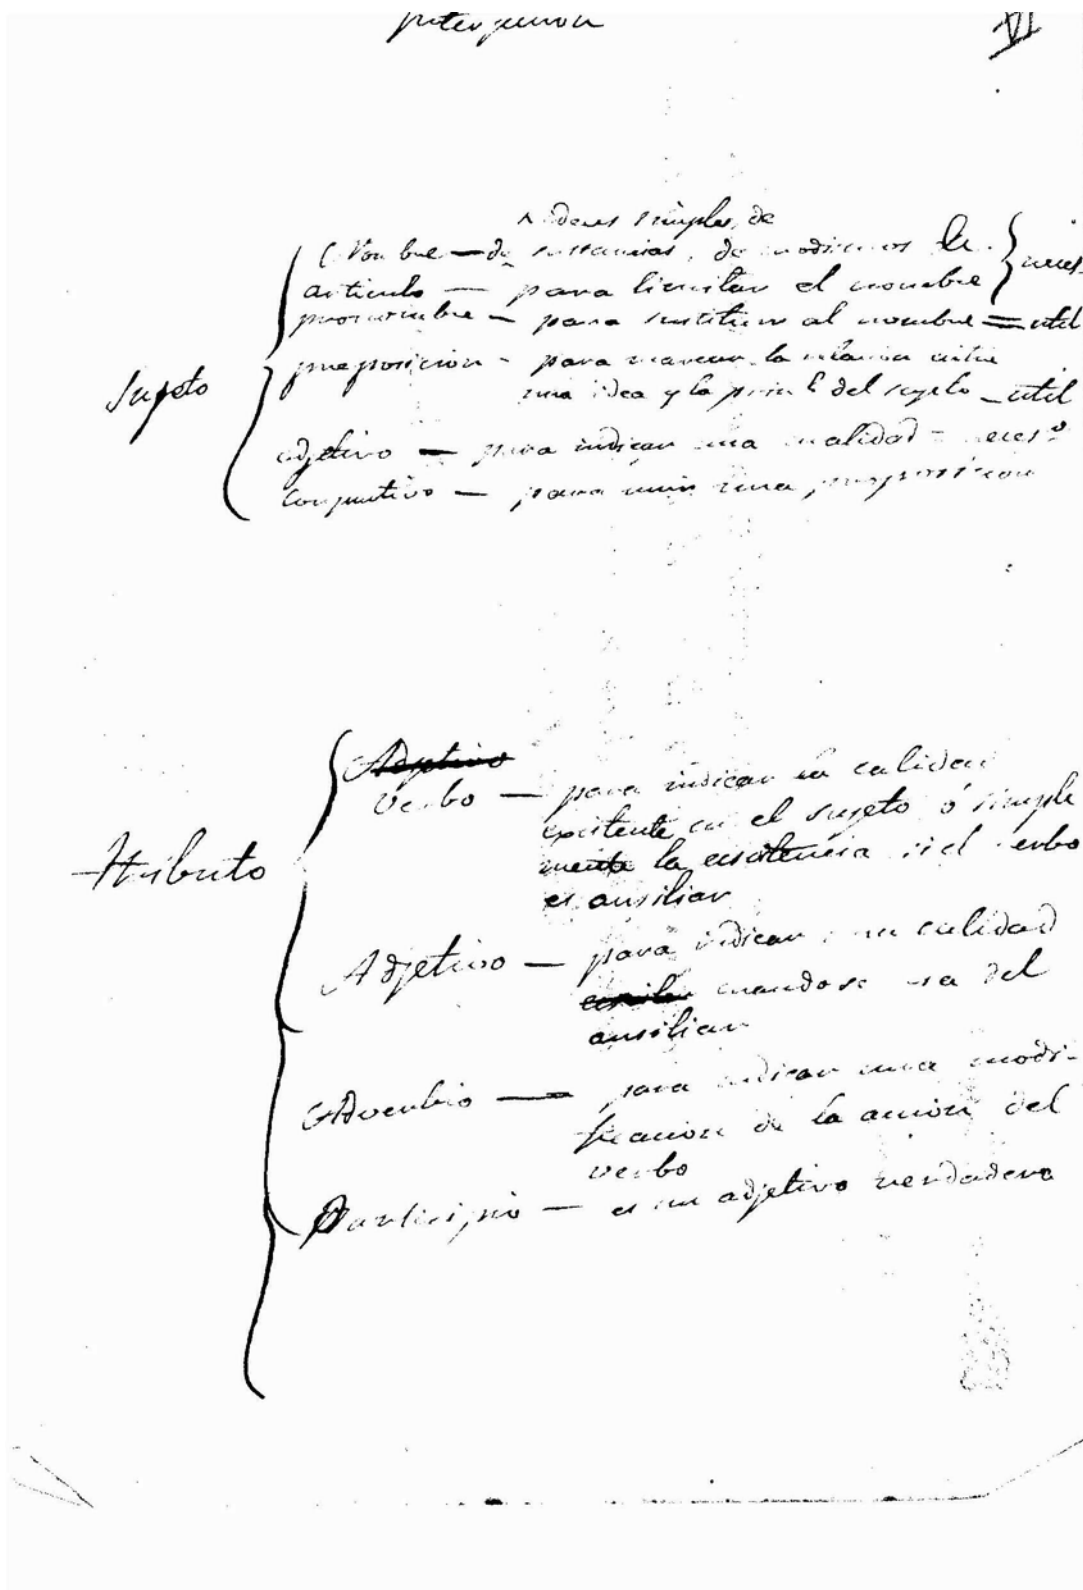 interjeccion
VI
ideas simples, de
Nombre — de sustancias, de
articulo — para limitar el nombre
neces.
pronombre — para sustituir al nombre = util
preposicion - para marcar la relacion entre
una idea y la del sujeto - util
Sujeto
adjetivo — para indicar una cualidad - neces.º
Conjuntivo — para unir una proposicion
Adjetivo
Verbo — para indicar la calidad
existente en el sujeto ó simple
mente la existencia si el verbo
es ausiliar
Atributo
Adjetivo — para indicar una calidad
cuando se usa del
ausiliar
Adverbio — para indicar una modi-
ficacion de la accion del
verbo
Participio — es un adjetivo verdadero